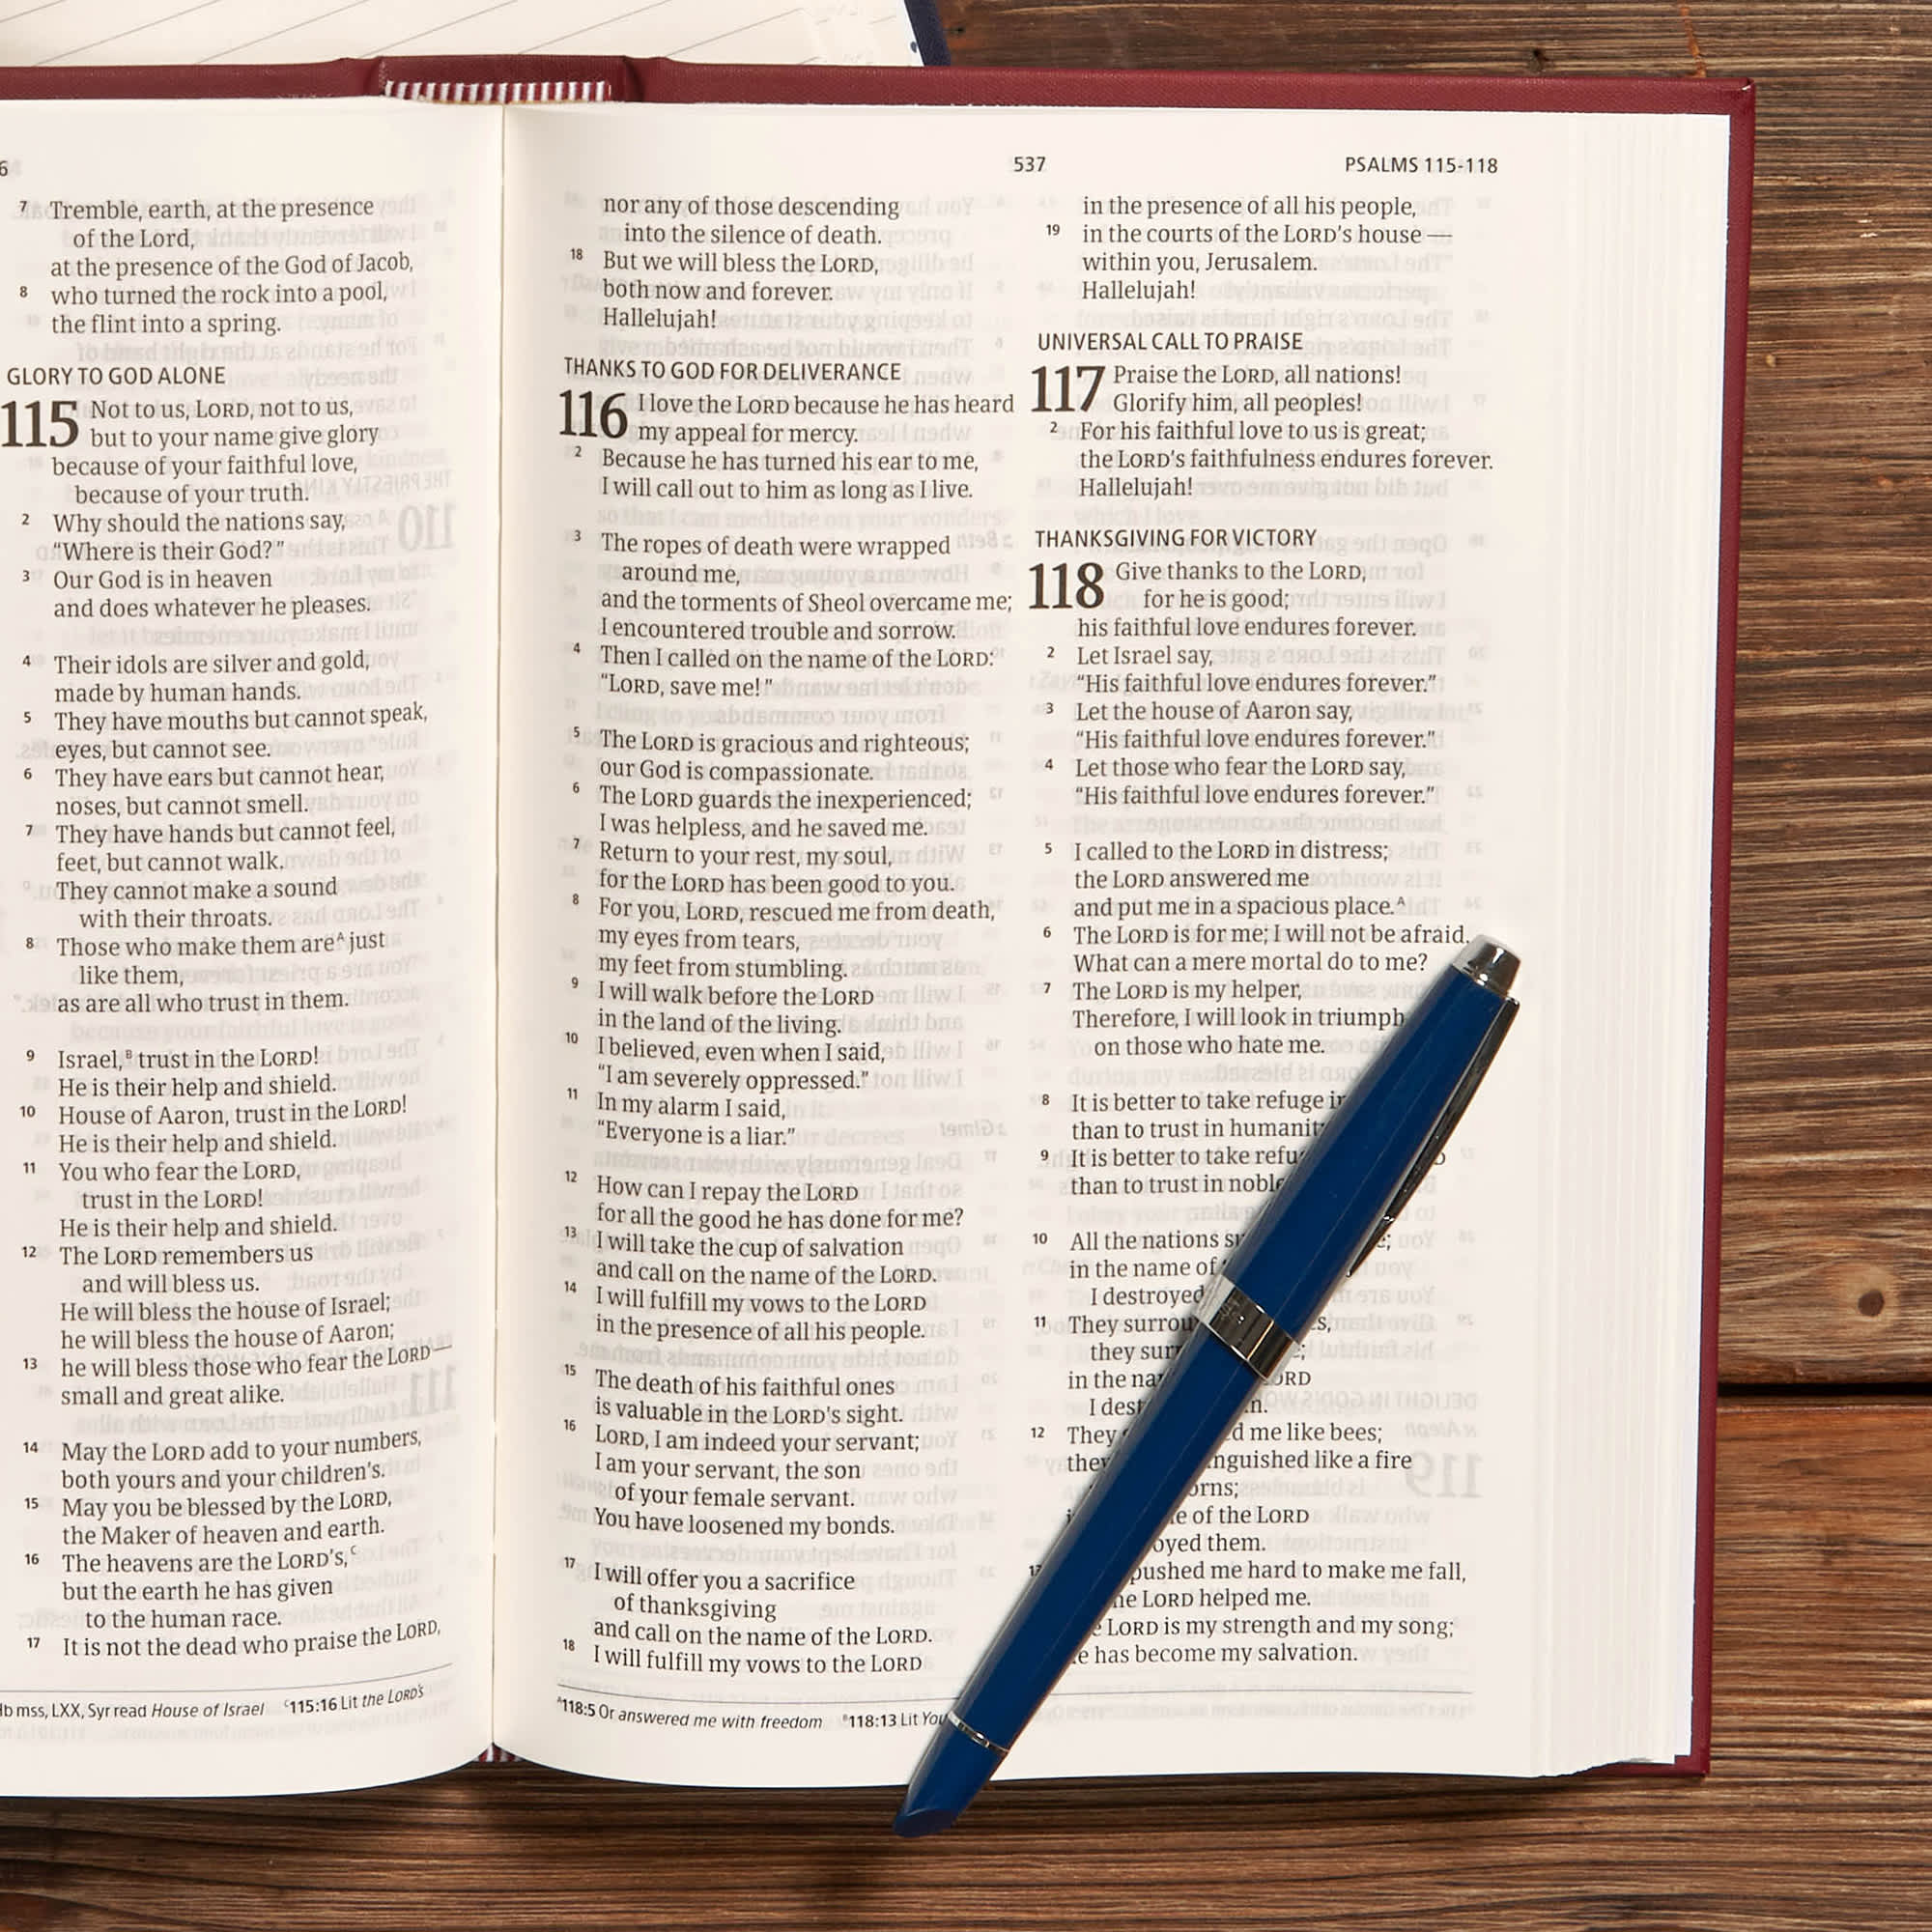 6
7 Tremble, earth, at the presence
of the Lord,
at the presence of the God of Jacob,
8 who turned the rock into a pool,
the flint into a spring.
GLORY TO GOD ALONE
115 Not to us, LORD, not to us,
but to your name give glory
because of your faithful love,
because of your truth.
2 Why should the nations say,
“Where is their God?”
3 Our God is in heaven
and does whatever he pleases.
4 Their idols are silver and gold,
made by human hands.
5 They have mouths but cannot speak,
eyes, but cannot see.
6 They have ears but cannot hear,
noses, but cannot smell.
7 They have hands but cannot feel,
feet, but cannot walk.
They cannot make a sound
with their throats.
8 Those who make them are^A just
like them,
as are all who trust in them.
9 Israel,^B trust in the LORD!
He is their help and shield.
10 House of Aaron, trust in the LORD!
He is their help and shield.
11 You who fear the LORD,
trust in the LORD!
He is their help and shield.
12 The LORD remembers us
and will bless us.
He will bless the house of Israel;
he will bless the house of Aaron;
13 he will bless those who fear the LORD —
small and great alike.
14 May the LORD add to your numbers,
both yours and your children’s.
15 May you be blessed by the LORD,
the Maker of heaven and earth.
16 The heavens are the LORD’s,^C
but the earth he has given
to the human race.
17 It is not the dead who praise the LORD,
mss, LXX, Syr read House of Israel ^C115:16 Lit the LORD’s
537 PSALMS 115-118
nor any of those descending
into the silence of death.
18 But we will bless the LORD,
both now and forever.
Hallelujah!
THANKS TO GOD FOR DELIVERANCE
116 I love the LORD because he has heard
my appeal for mercy.
2 Because he has turned his ear to me,
I will call out to him as long as I live.
3 The ropes of death were wrapped
around me,
and the torments of Sheol overcame me;
I encountered trouble and sorrow.
4 Then I called on the name of the LORD:
“LORD, save me!”
5 The LORD is gracious and righteous;
our God is compassionate.
6 The LORD guards the inexperienced;
I was helpless, and he saved me.
7 Return to your rest, my soul,
for the LORD has been good to you.
8 For you, LORD, rescued me from death,
my eyes from tears,
my feet from stumbling.
9 I will walk before the LORD
in the land of the living.
10 I believed, even when I said,
“I am severely oppressed.”
11 In my alarm I said,
“Everyone is a liar.”
12 How can I repay the LORD
for all the good he has done for me?
13 I will take the cup of salvation
and call on the name of the LORD.
14 I will fulfill my vows to the LORD
in the presence of all his people.
15 The death of his faithful ones
is valuable in the LORD’s sight.
16 LORD, I am indeed your servant;
I am your servant, the son
of your female servant.
You have loosened my bonds.
17 I will offer you a sacrifice
of thanksgiving
and call on the name of the LORD.
18 I will fulfill my vows to the LORD
in the presence of all his people,
19 in the courts of the LORD’s house —
within you, Jerusalem.
Hallelujah!
UNIVERSAL CALL TO PRAISE
117 Praise the LORD, all nations!
Glorify him, all peoples!
2 For his faithful love to us is great;
the LORD’s faithfulness endures forever.
Hallelujah!
THANKSGIVING FOR VICTORY
118 Give thanks to the LORD,
for he is good;
his faithful love endures forever.
2 Let Israel say,
“His faithful love endures forever.”
3 Let the house of Aaron say,
“His faithful love endures forever.”
4 Let those who fear the LORD say,
“His faithful love endures forever.”
5 I called to the LORD in distress;
the LORD answered me
and put me in a spacious place.^A
6 The LORD is for me; I will not be afraid.
What can a mere mortal do to me?
7 The LORD is my helper,
Therefore, I will look in triumph
on those who hate me.
8 It is better to take refuge
than to trust in
9 It is better to take
than to trust in
10 All the nations
in the name of
I destroyed
11 They
they
in the
I
12 They me like bees;
like a fire
of the LORD
them.
pushed me hard to make me fall,
LORD helped me.
LORD is my strength and my song;
has become my salvation.
^A118:5 Or answered me with freedom ^B118:13 Lit You